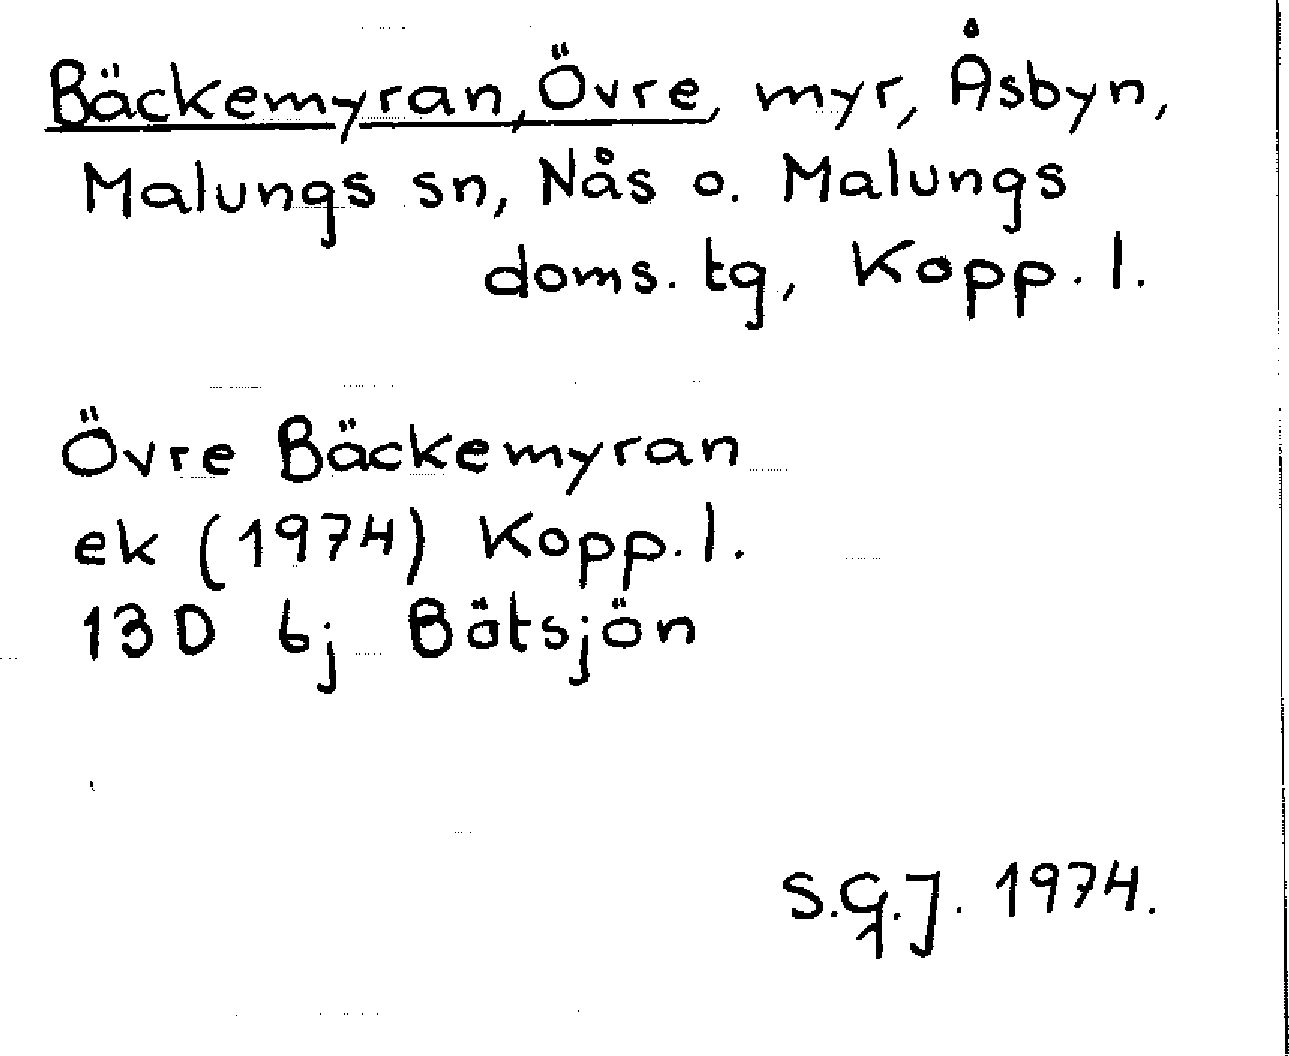 Bäckemyran, Övre, myr, Åsbyn,
Malungs sn, Nås o. Malungs
doms. tg, Kopp. l.
Övre Bäckemyran
ek (1974) Kopp. l.
13D bj Bötsjön
S.G.J. 1974.